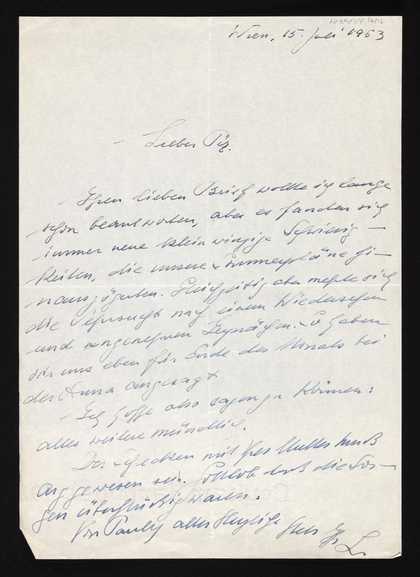 Wien, 15. Juli 1953
Lieber Pig.
Ihren lieben Brief wollte ich lange
schon beantworten, aber es fanden sich
immer neue klein winzige Schwierig-
keiten, die unsere Sommerpläne hi-
nauszögerten. Gleichzeitig aber mehrte sich
die Sehnsucht nach einem Wiedersehen
und angenehmen Gesprächen. So haben
wir uns eben für Ende des Monats bei
der Anna angesagt
Ich hoffe also sagen zu können:
alles weitere mündlich.
Der Schrecken mit Ihrer Mutter muß
arg gewesen sein. Gottlob daß die Sor-
gen überflüssig waren.
Von Pauly alles Herzliche Ihr
L.